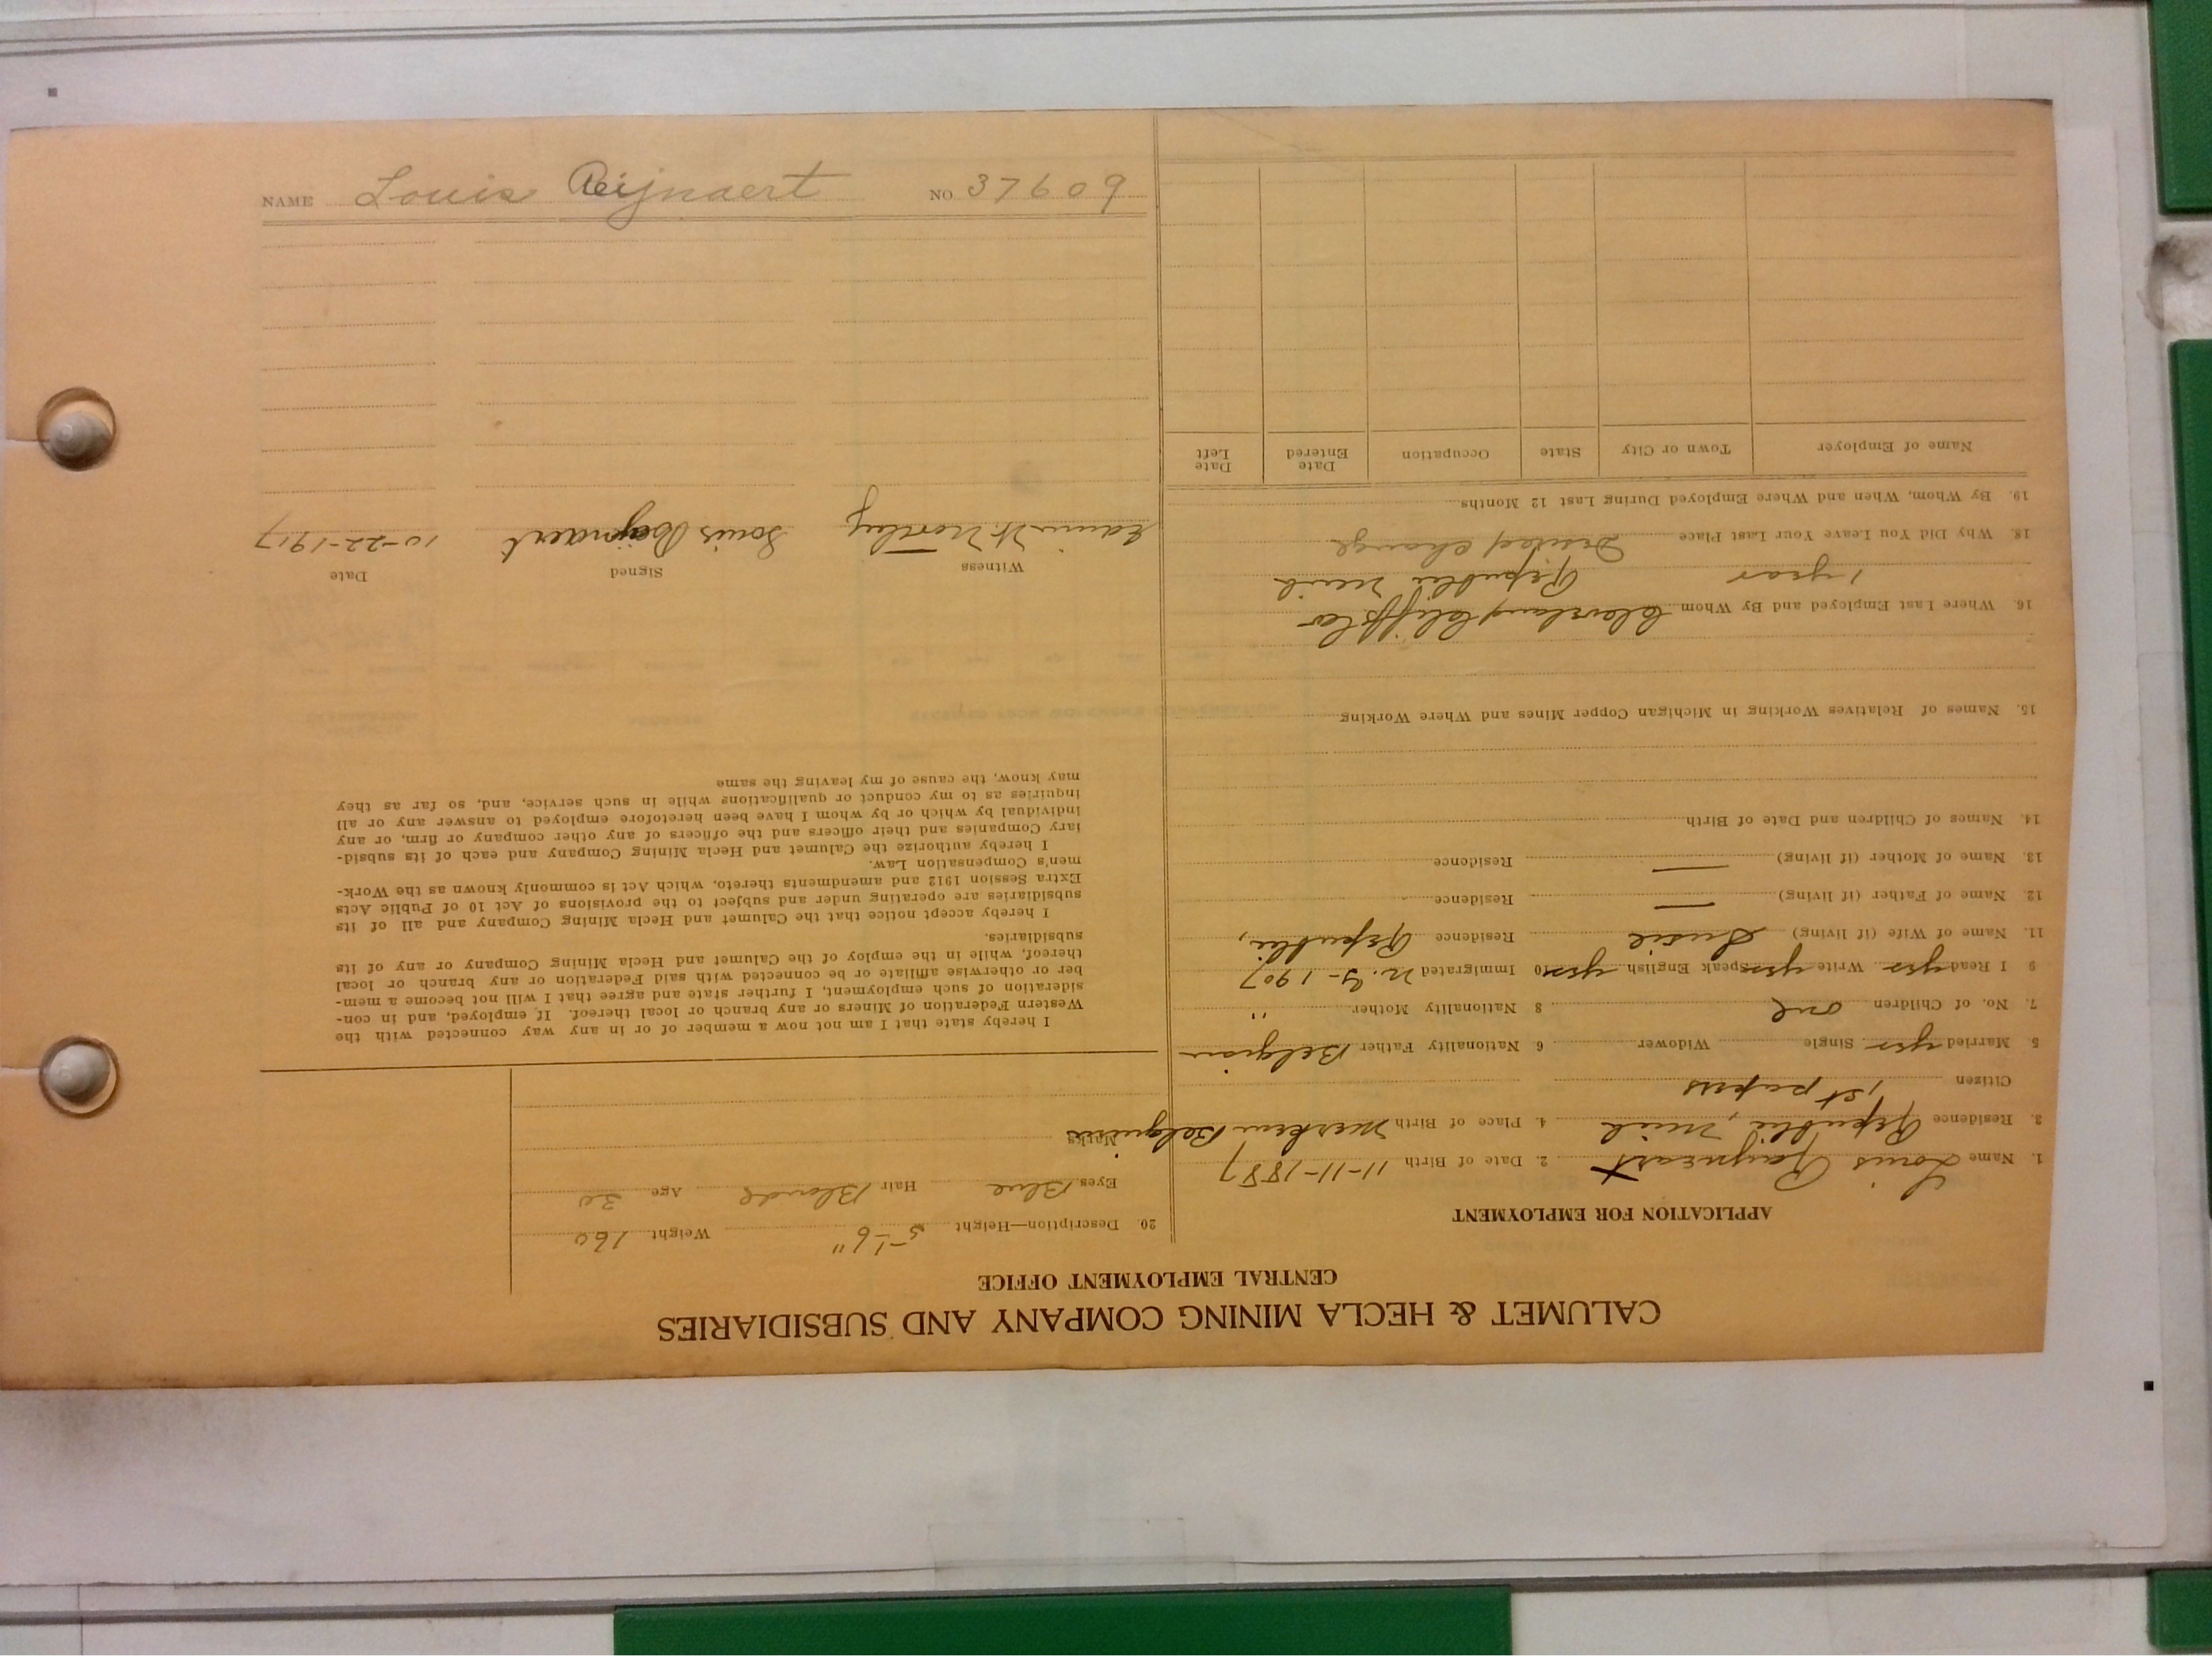 CALUMET & HECLA MINING COMPANY AND SUBSIDIARIES
CENTRAL EMPLOYMENT OFFICE
APPLICATION FOR EMPLOYMENT
1. Name Louis Rayneart 2. Date of Birth 11-11-1887
3. Residence Republic, Mich 4. Place of Birth Merkem Belguim
Citizen 1st papers
5. Married yes Single Widower 6 Nationality Father Belgian
7. No. of Children one 8 Nationality Mother "
9 I Read yes Write yes Speak English yes 10 Immigrated N.Y-1907
11. Name of Wife (if living) Susie Residence Republic,
12. Name of Father (if living) — Residence
13. Name of Mother (if living) — Residence
14. Names of Children and Date of Birth
15. Names of Relatives Working in Michigan Copper Mines and Where Working
16. Where Last Employed and By Whom Cleveland Cliffs Co
1 year Republic Mich
18. Why Did You Leave Your Last Place Desired Change
19. By Whom, When and Where Employed During Last 12 Months
Name of Employer Town or City State Occupation Date Entered Date Left
20. Description—Height 5'-6" Weight 160
Eyes Blue Hair Blonde Age 30
Marks
I hereby state that I am not now a member of or in any way connected with the
Western Federation of Miners or any branch or local thereof. If employed, and in con-
sideration of such employment, I further state and agree that I will not become a mem-
ber or otherwise affiliate or be connected with said Federation or any branch or local
thereof, while in the employ of the Calumet and Hecla Mining Company or any of its
subsidiaries.
I hereby accept notice that the Calumet and Hecla Mining Company and all of its
subsidiaries are operating under and subject to the provisions of Act 10 of Public Acts
Extra Session 1912 and amendments thereto, which Act is commonly known as the Work-
men's Compensation Law.
I hereby authorize the Calumet and Hecla Mining Company and each of its subsid-
iary Companies and their officers and the officers of any other company or firm, or any
individual by which or by whom I have been heretofore employed to answer any or all
inquiries as to my conduct or qualifications while in such service, and, so far as they
may know, the cause of my leaving the same
Witness Signed Date
Edwin W. Worthey Louis Reijnaert 10-22-1917
NAME Louis Reijnaert NO 37609